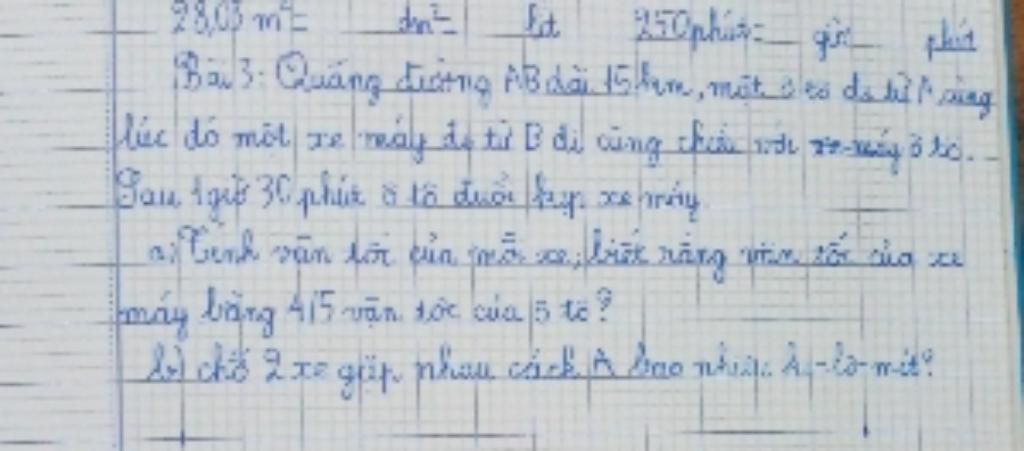 28,05 m²= dm²= ha 250phút= giờ phút
Bài 3: Quãng đường AB dài 15km, một ô tô đi từ A, cùng
lúc đó một xe máy đi từ B đi cùng chiều với xe máy ô tô.
Sau 1 giờ 30 phút ô tô đuổi kịp xe máy.
a) Tính vận tốc của mỗi xe, biết rằng vận tốc của xe
máy bằng 4/5 vận tốc của ô tô?
b) chỗ 2 xe gặp nhau cách A bao nhiêu ki-lô-mét?